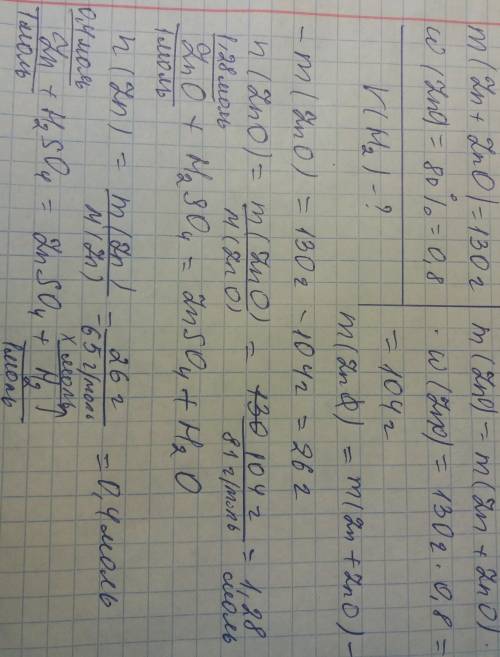 m(Zn + ZnO) = 130г
w(ZnO) = 80% = 0,8
n(H2) - ?
m(ZnO) = m(Zn + ZnO) ·
· w(ZnO) = 130г · 0,8 =
= 104г
m(Zn) = m(Zn + ZnO) -
- m(ZnO) = 130г - 104г = 26г
n(ZnO) = m(ZnO) / M(ZnO) = 104г / 81г/моль = 1,28 моль
1,28моль
ZnO + H2SO4 = ZnSO4 + H2O
1моль
n(Zn) = m(Zn) / M(Zn) = 26г / 65г/моль = 0,4моль
0,4моль x моль
Zn + H2SO4 = ZnSO4 + H2
1моль 1моль